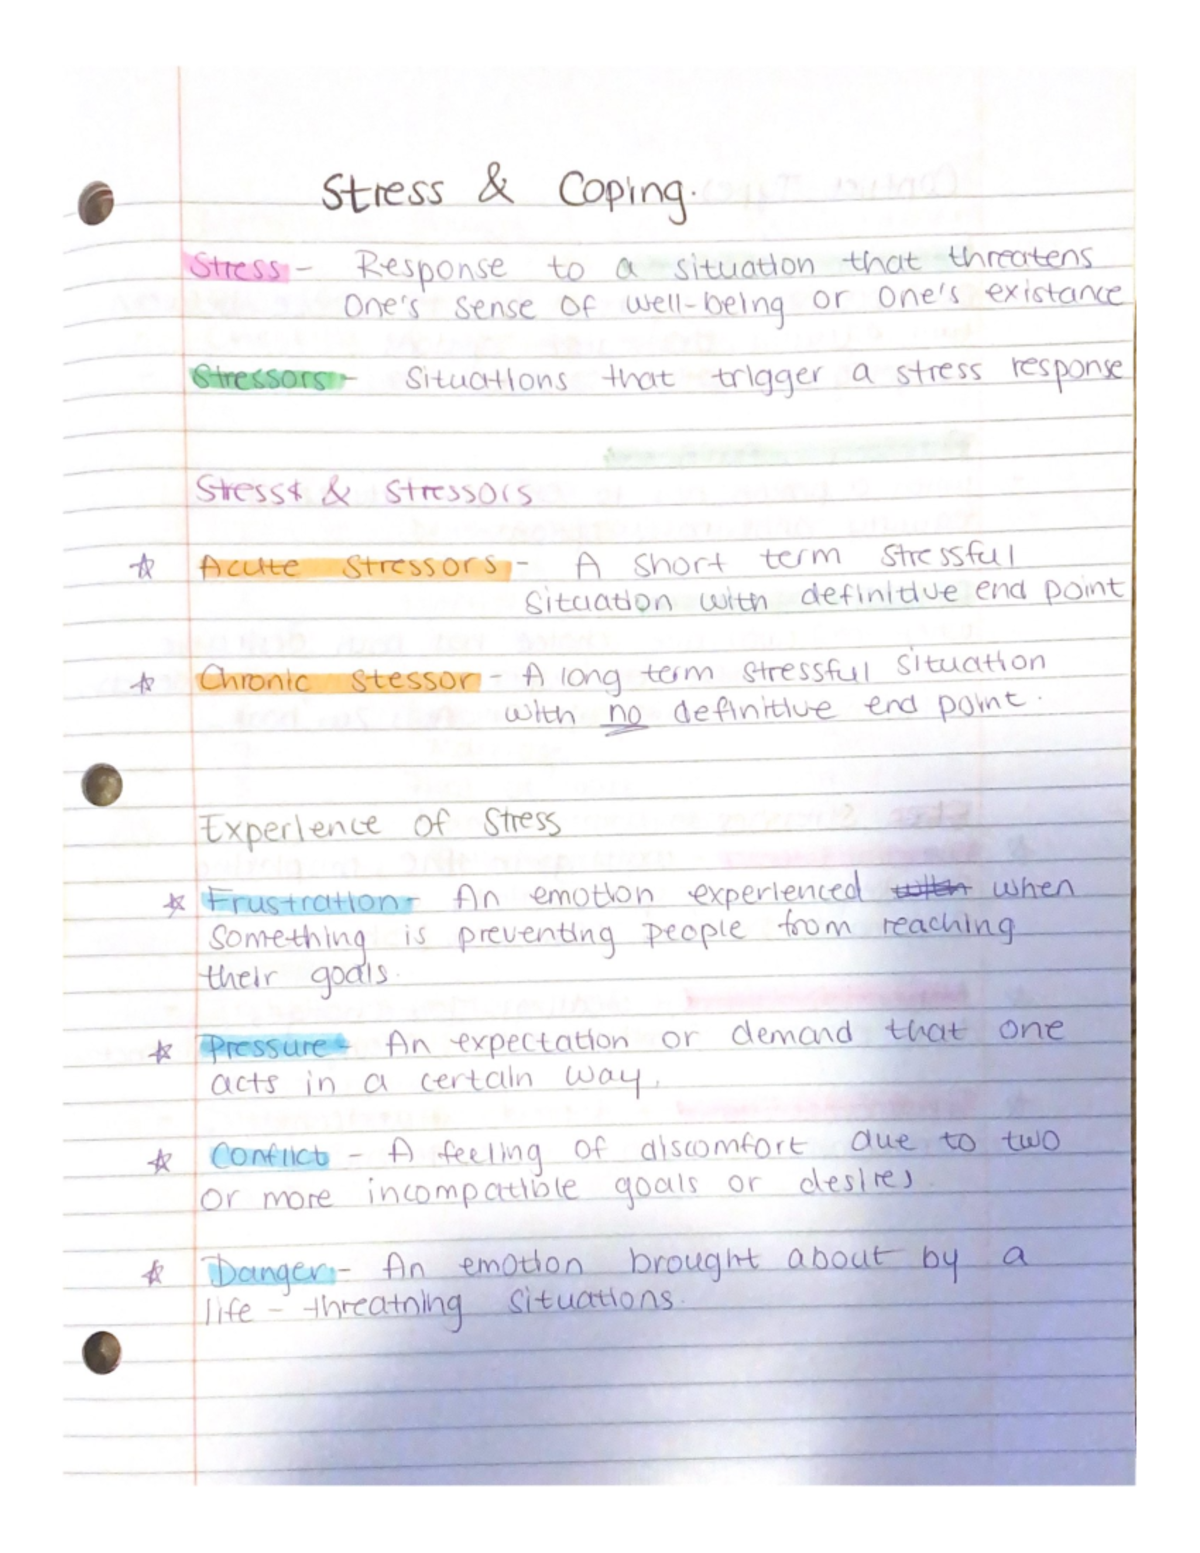 Stress & Coping.
Stress - Response to a situation that threatens
one's sense of well-being or one's existance
Stressors - Situations that trigger a stress response
Stress & stressors
Acute Stressors - A short term stressful
situation with definitive end point
Chronic stessor - A long term stressful situation
with no definitive end point.
Experience of Stress
Frustration - An emotion experienced when
something is preventing people from reaching
their goals.
Pressure - An expectation or demand that one
acts in a certain way.
Conflict - A feeling of discomfort due to two
or more incompatible goals or desires.
Danger - An emotion brought about by a
life-threatning situations.